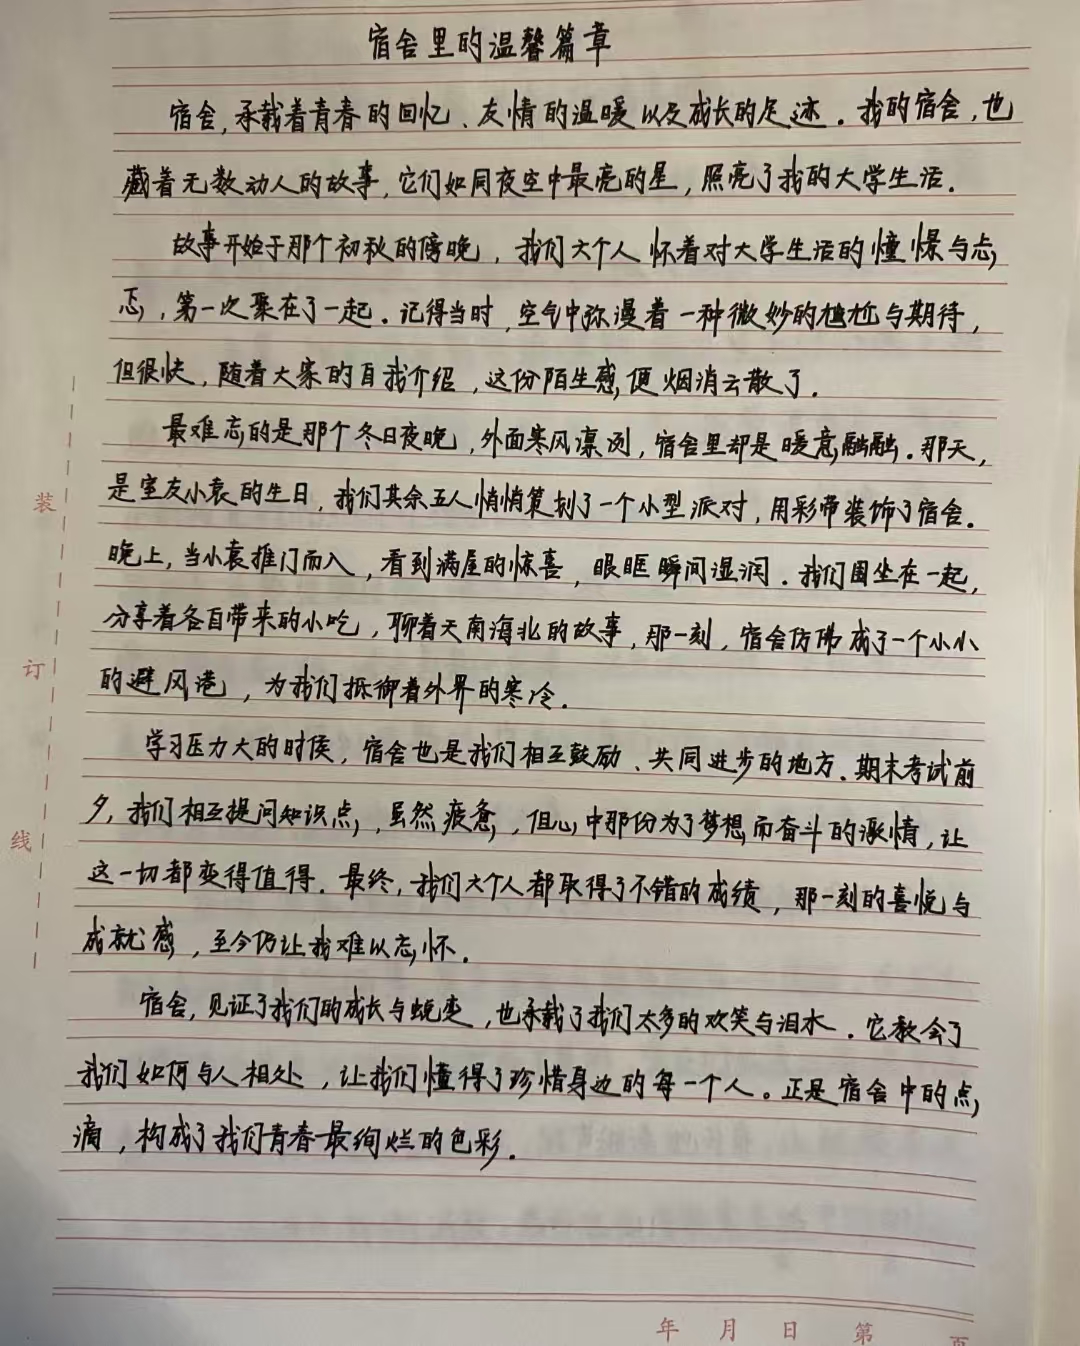 宿舍里的温馨篇章
宿舍,承载着青春的回忆、友情的温暖以及成长的足迹。我的宿舍,也
藏着无数动人的故事,它们如同夜空中最亮的星,照亮了我的大学生活。
故事开始于那个初秋的傍晚,我们六个人怀着对大学生活的憧憬与忐
忑,第一次聚在了一起。记得当时,空气中弥漫着一种微妙的尴尬与期待,
但很快,随着大家的自我介绍,这份陌生感便烟消云散了。
最难忘的是那个冬日夜晚,外面寒风凛冽,宿舍里却是暖意融融。那天,
是室友小袁的生日,我们其余五人悄悄策划了一个小型派对,用彩带装饰了宿舍。
晚上,当小袁推门而入,看到满屋的惊喜,眼眶瞬间湿润。我们围坐在一起,
分享着各自带来的小吃,聊着天南海北的故事,那一刻,宿舍仿佛成了一个小小
的避风港,为我们抵御着外界的寒冷。
学习压力大的时侯,宿舍也是我们相互鼓励、共同进步的地方。期末考试前
夕,我们相互提问知识点,虽然疲惫,但心中那份为了梦想而奋斗的激情,让
这一切都变得值得。最终,我们六个人都取得了不错的成绩,那一刻的喜悦与
成就感,至今仍让我难以忘怀。
宿舍,见证了我们的成长与蜕变,也承载了我们太多的欢笑与泪水。它教会了
我们如何与人相处,让我们懂得了珍惜身边的每一个人。正是宿舍中的点
滴,构成了我们青春最绚烂的色彩。
装
订
线
年 月 日 第 页